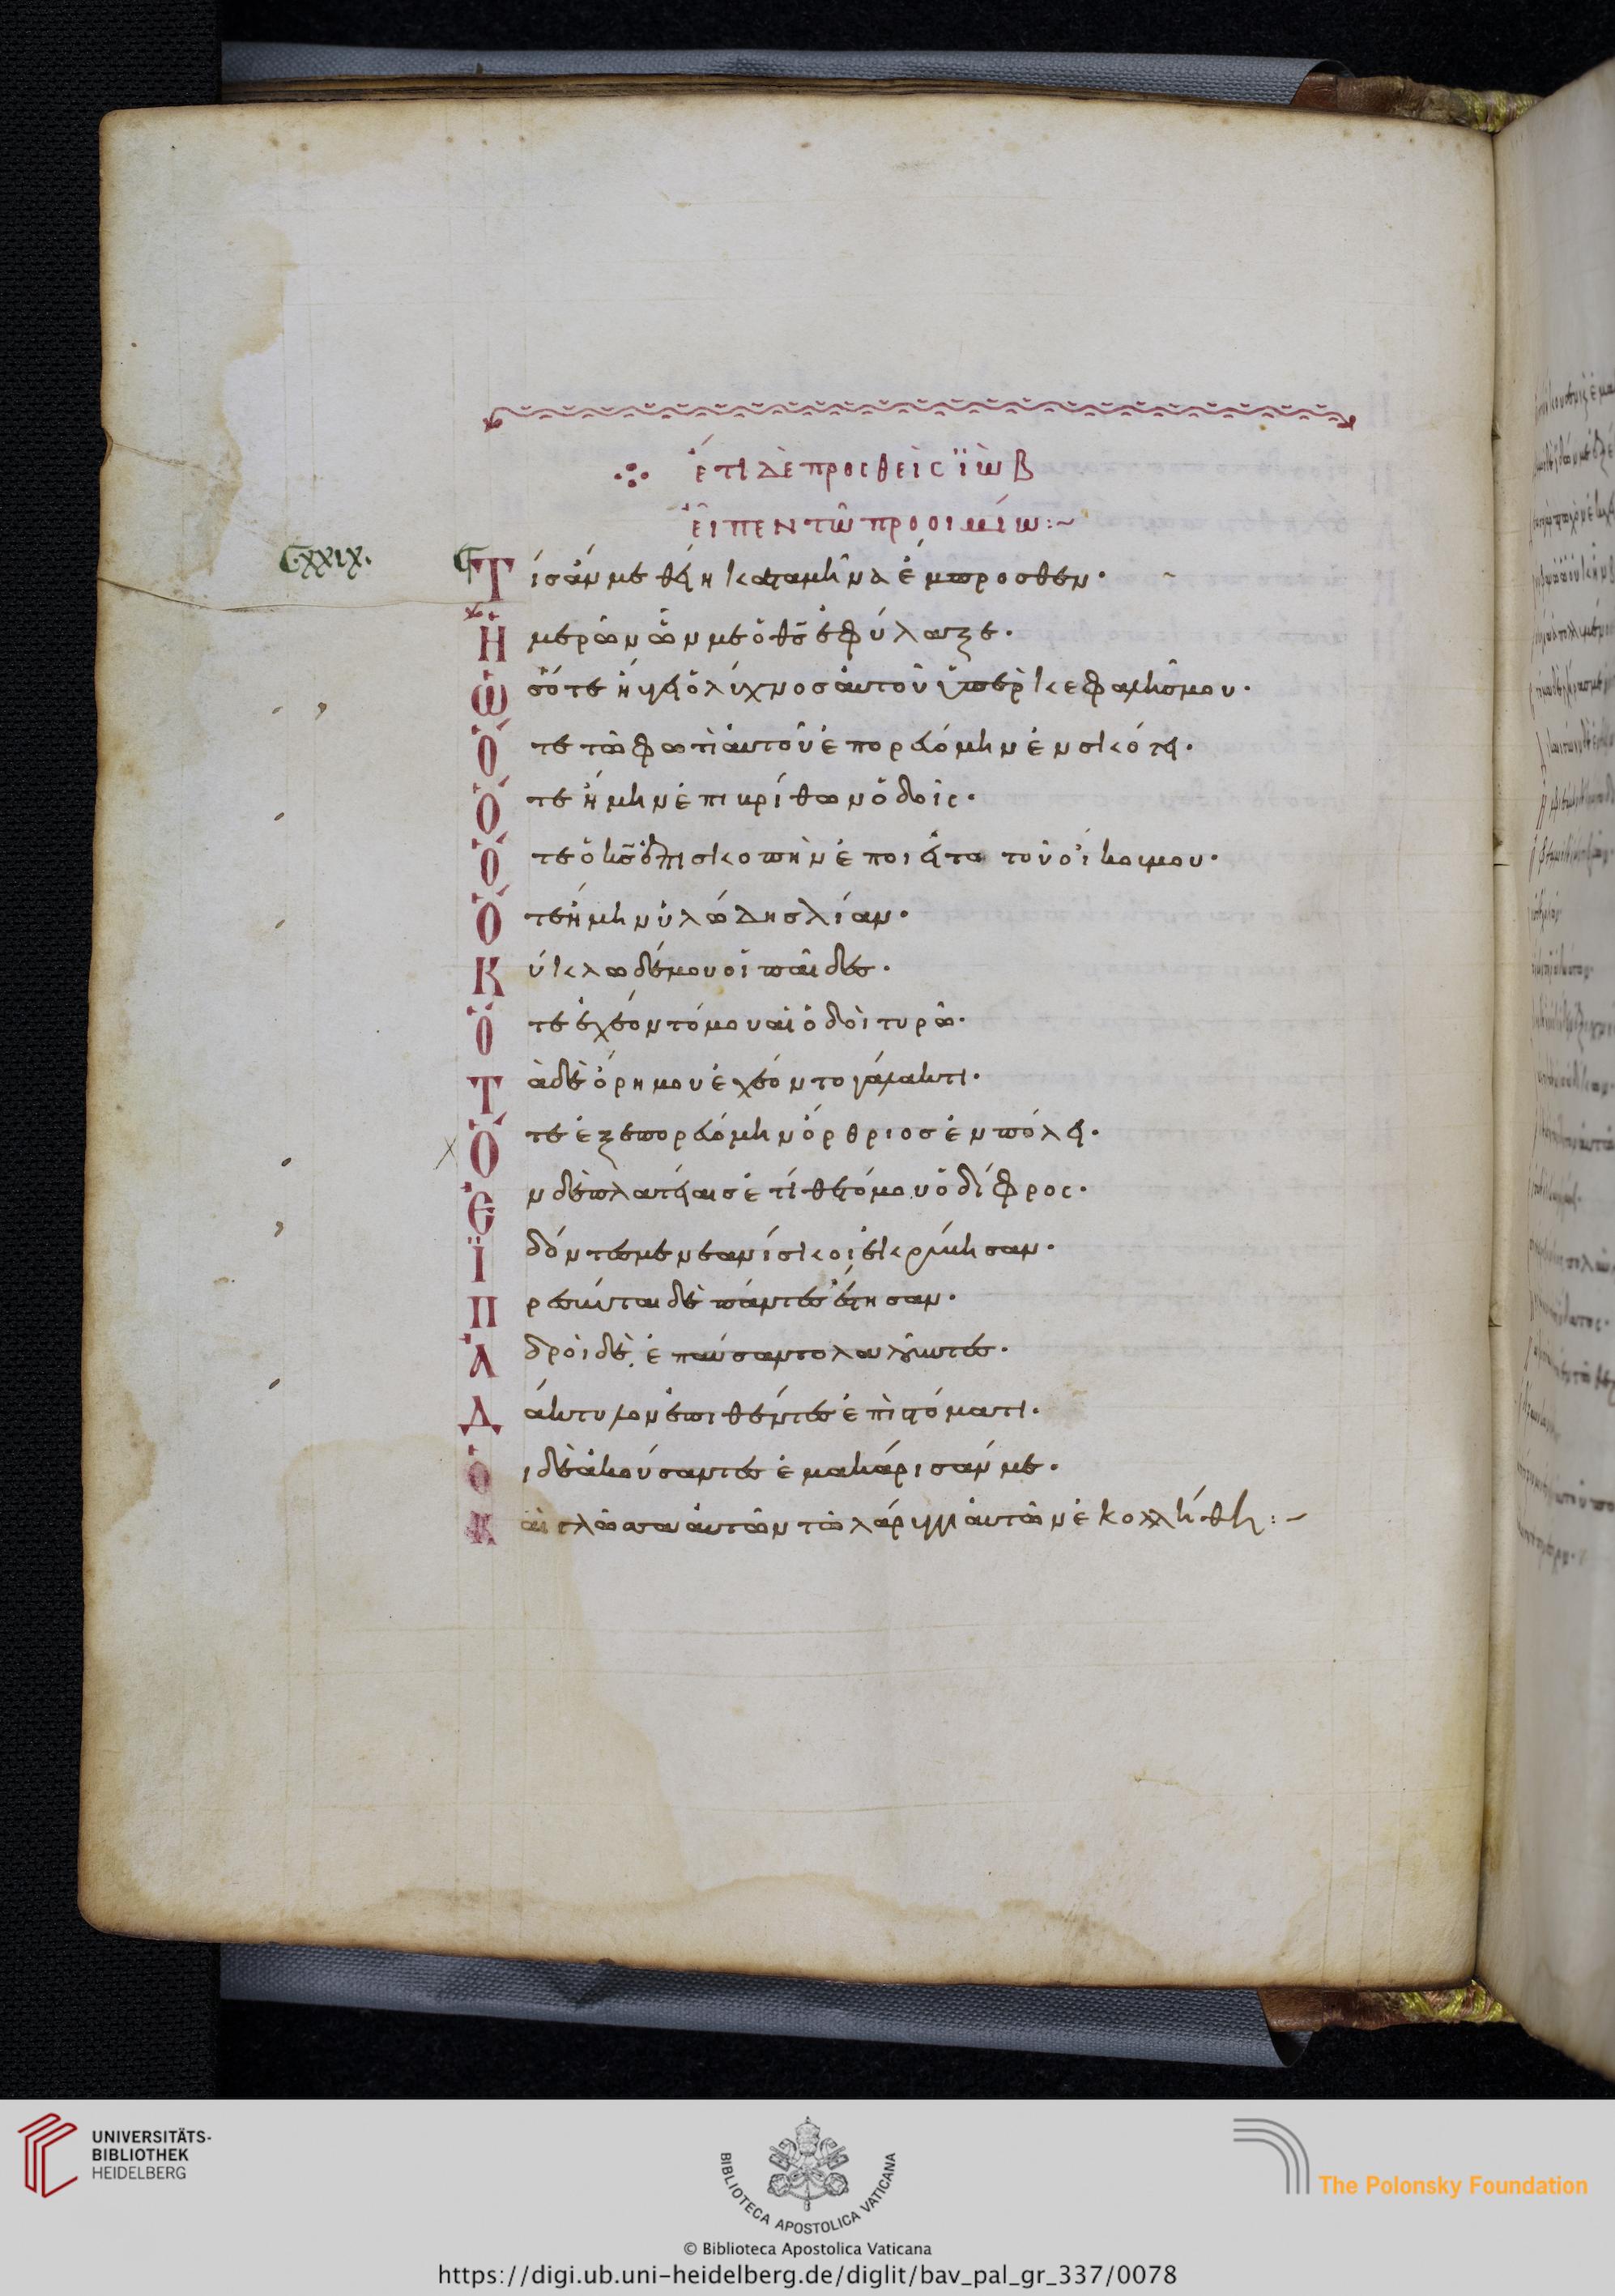 ἔτι δὲ προσθεὶς ϊὼβ
εἶπεν τῶ προοιμίω:~
C.xxix.
Τίς ἄν με θείη κατα μῆνα ἔμπροσθεν·
Ἡμερῶν ὧν με ὁ θ̅ς̅ ἐφύλαξε·
Ὡς ὅτε ηὔγει ὁ λύχνος αὐτοῦ ὑπὲρ κεφαλῆς μου·
Ὅτε τῶ φωτὶ αὐτοῦ ἐπορευόμην ἐν σκότει·
Ὅτε ἤμην ἐπικρίθων ὁδοῖς·
Ὅτε ὁ κ̅ς̅ ἐπισκοπὴν ἐποιεῖτο τοῦ οἴκου μου·
Ὅτε ἤμην ὑλώδης λίαν·
Κύκλω δέ μου οἱ παῖδες·
Ὅτε ἐχέοντό μου αἱ ὁδοὶ τυρῶ·
Τὰ δὲ ὄρη μου ἐχέοντο γάλακτι·
Ὅτε ἐξεπορευόμην ὄρθριος ἐν πόλει·
Ἐν δὲ πλατείαις ἐτίθετό μου ὁ δίφρος·
Ἰδόντες με νεανίσκοι ἐκρύβησαν·
Πρεσβῦται δὲ πάντες ἔστησαν·
Ἁδροὶ δὲ ἐπαύσαντο λαλοῦντες·
Δάκτυλον ἐπιθέντες ἐπὶ στόματι·
Οἱ δὲ ἀκούσαντες ἐμακάρισάν με·
Καὶ γλῶσσα αὐτῶν τῶ λάρυγγι αὐτῶν ἐκολλήθη:~
UNIVERSITÄTS-
BIBLIOTHEK
HEIDELBERG
BIBLIOTECA APOSTOLICA VATICANA
The Polonsky Foundation
© Biblioteca Apostolica Vaticana
https://digi.ub.uni-heidelberg.de/diglit/bav_pal_gr_337/0078